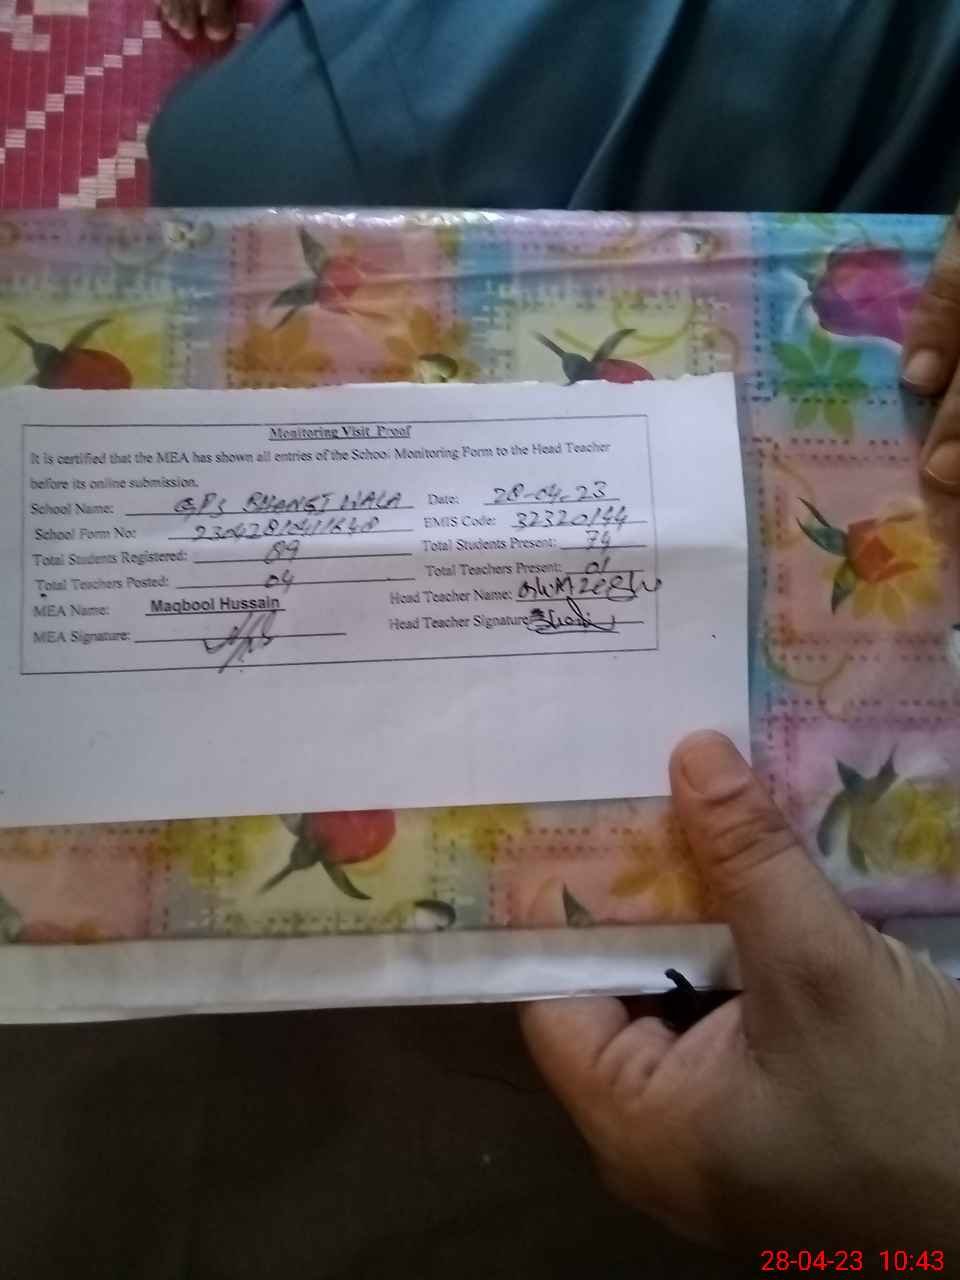 Monitoring Visit Proof
It is certified that the MEA has shown all entries of the School Monitoring Form to the Head Teacher
before its online submission.
School Name: GPS BHANGI WALA Date: 28-04-23
School Form No: EMIS Code: 32320144
Total Students Registered: 89 Total Students Present: 74
Total Teachers Posted: 04 Total Teachers Present: 01
MEA Name: Maqbool Hussain Head Teacher Name:
MEA Signature: Head Teacher Signature
28-04-23 10:43